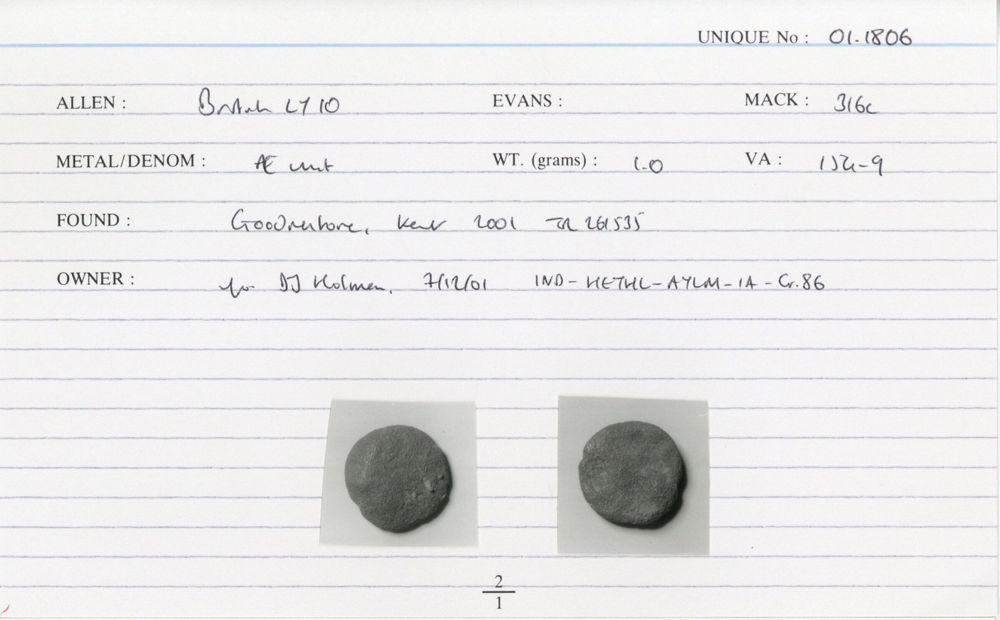 UNIQUE No : 01.1806
ALLEN : British LY10 EVANS : MACK : 316c
METAL/DENOM : Æ unit WT. (grams) : 1.0 VA :
FOUND : Goodnestone, Kent 2001 TR 261535
OWNER : for DJ Holman, 7/12/01 IND-METHL-AYLM-IA-Cr.86
2
1